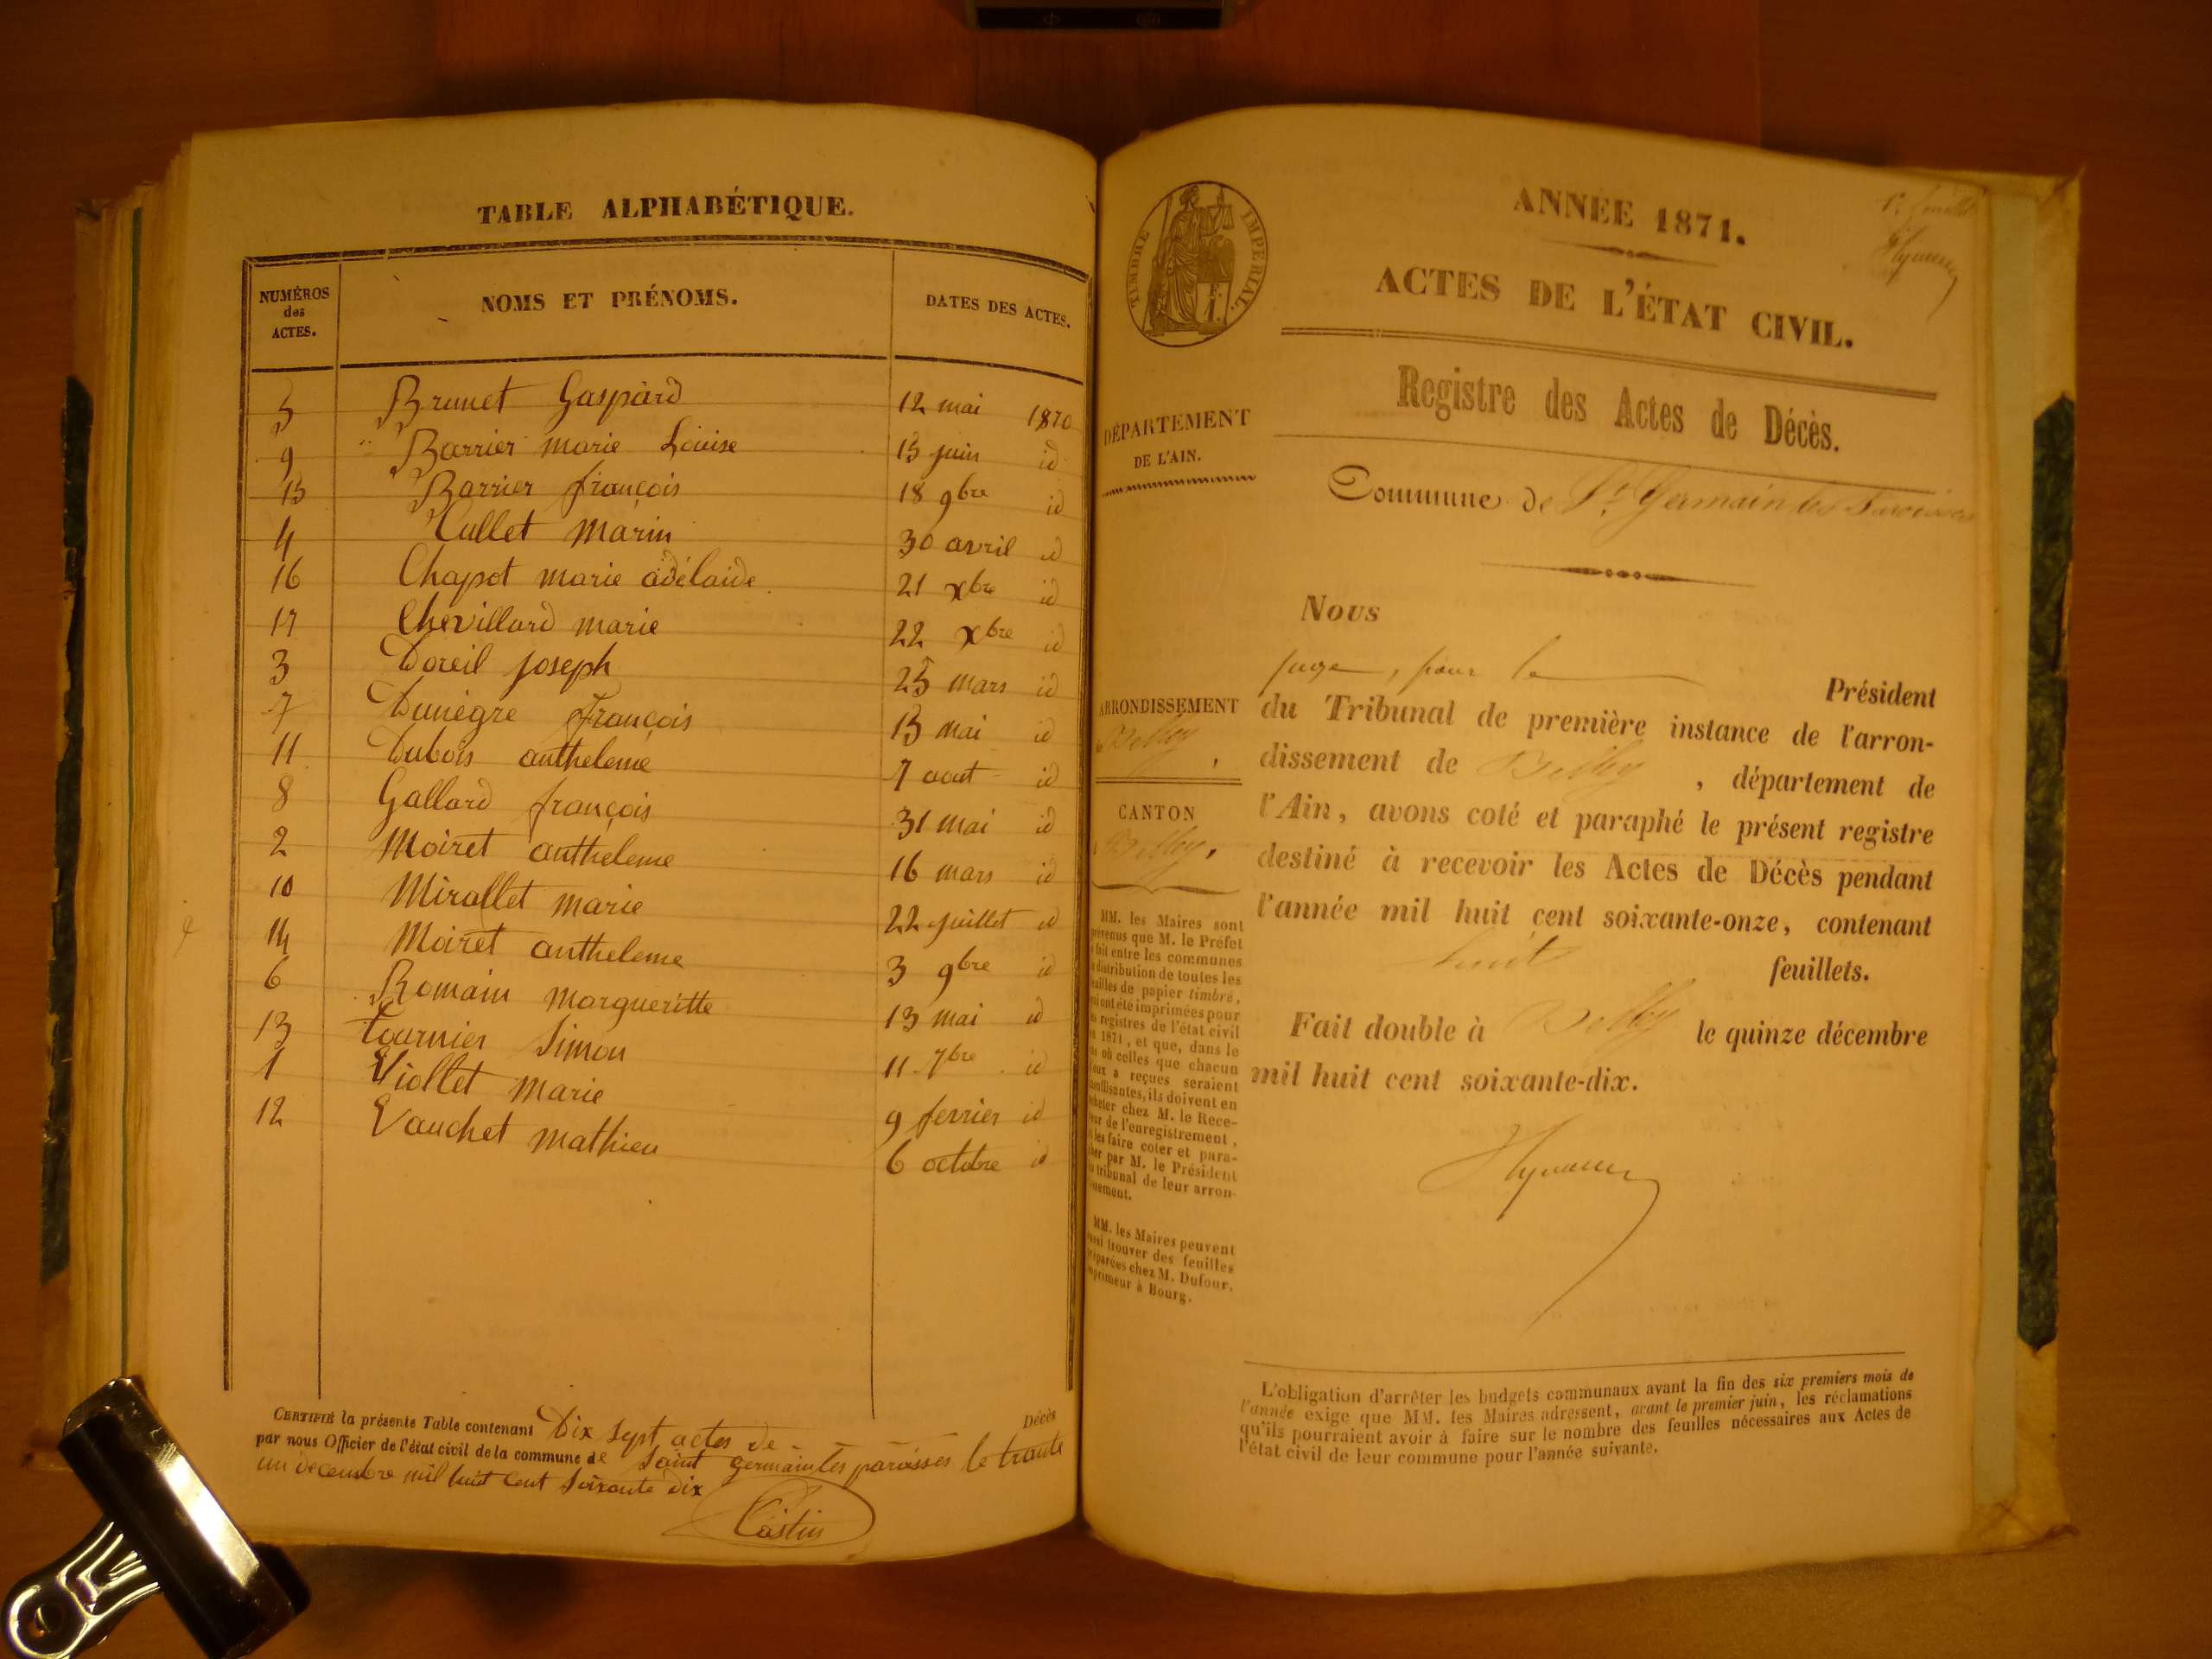 TABLE ALPHABÉTIQUE.
NUMÉROS des ACTES. NOMS ET PRÉNOMS. DATES DES ACTES.
5 Brunet Gaspard 12 mai 1870
9 Barrier marie Louise 15 juin id
15 Barrier françois 18 9bre id
4 Cullet marin 30 avril id
16 Chapot marie adélaide 21 xbre id
17 Chevillard marie 22 xbre id
3 Doreil joseph 25 mars id
7 Dunégre françois 15 mai id
11 Dubois antheleme 7 aout id
8 Gallard françois 31 mai id
2 Moiret antheleme 16 mars id
10 Mirallet marie 22 juillet id
14 Moiret antheleme 3 9bre id
6 Romain margueritte 13 mai id
13 Tournier Simon 11 7bre id
1 Viollet marie 9 fevrier id
12 Vauchet mathieu 6 octobre id
CERTIFIÉ la présente Table contenant Dix sept actes de Décès
par nous Officier de l'état civil de la commune de Saint germain les paroisses le trente
un decembre mil huit cent soixante dix
Castin
TIMBRE IMPÉRIAL.
ANNÉE 1871.
ACTES DE L'ÉTAT CIVIL.
Registre des Actes de Décès.
DÉPARTEMENT
DE L'AIN.
Commune de St. Germain les Paroisses
ARRONDISSEMENT
Belley,
CANTON
Belley.
MM. les Maires sont
prévenus que M. le Préfet
a fait entre les communes
la distribution de toutes les
feuilles de papier timbré,
qui ont été imprimées pour
les registres de l'état civil
en 1871, et que, dans le
cas où celles que chacun
d'eux a reçues seraient
insuffisantes, ils doivent en
acheter chez M. le Rece-
veur de l'enregistrement,
et les faire coter et para-
pher par M. le Président
du tribunal de leur arron-
dissement.
MM. les Maires peuvent
aussi trouver des feuilles
préparées chez M. Dufour,
imprimeur à Bourg.
Nous
juge, pour le Président
du Tribunal de première instance de l'arron-
dissement de Belley, département de
l'Ain, avons coté et paraphé le présent registre
destiné à recevoir les Actes de Décès pendant
l'année mil huit cent soixante-onze, contenant
huit feuillets.
Fait double à Belley le quinze décembre
mil huit cent soixante-dix.
L'obligation d'arrêter les budgets communaux avant la fin des six premiers mois de
l'année exige que MM. les Maires adressent, avant le premier juin, les réclamations
qu'ils pourraient avoir à faire sur le nombre des feuilles nécessaires aux Actes de
l'état civil de leur commune pour l'année suivante.